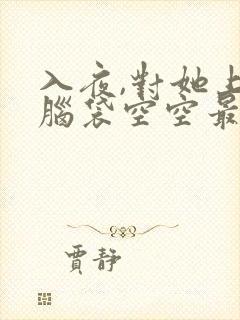 入夜,對她上
腦袋空空最
賈靜